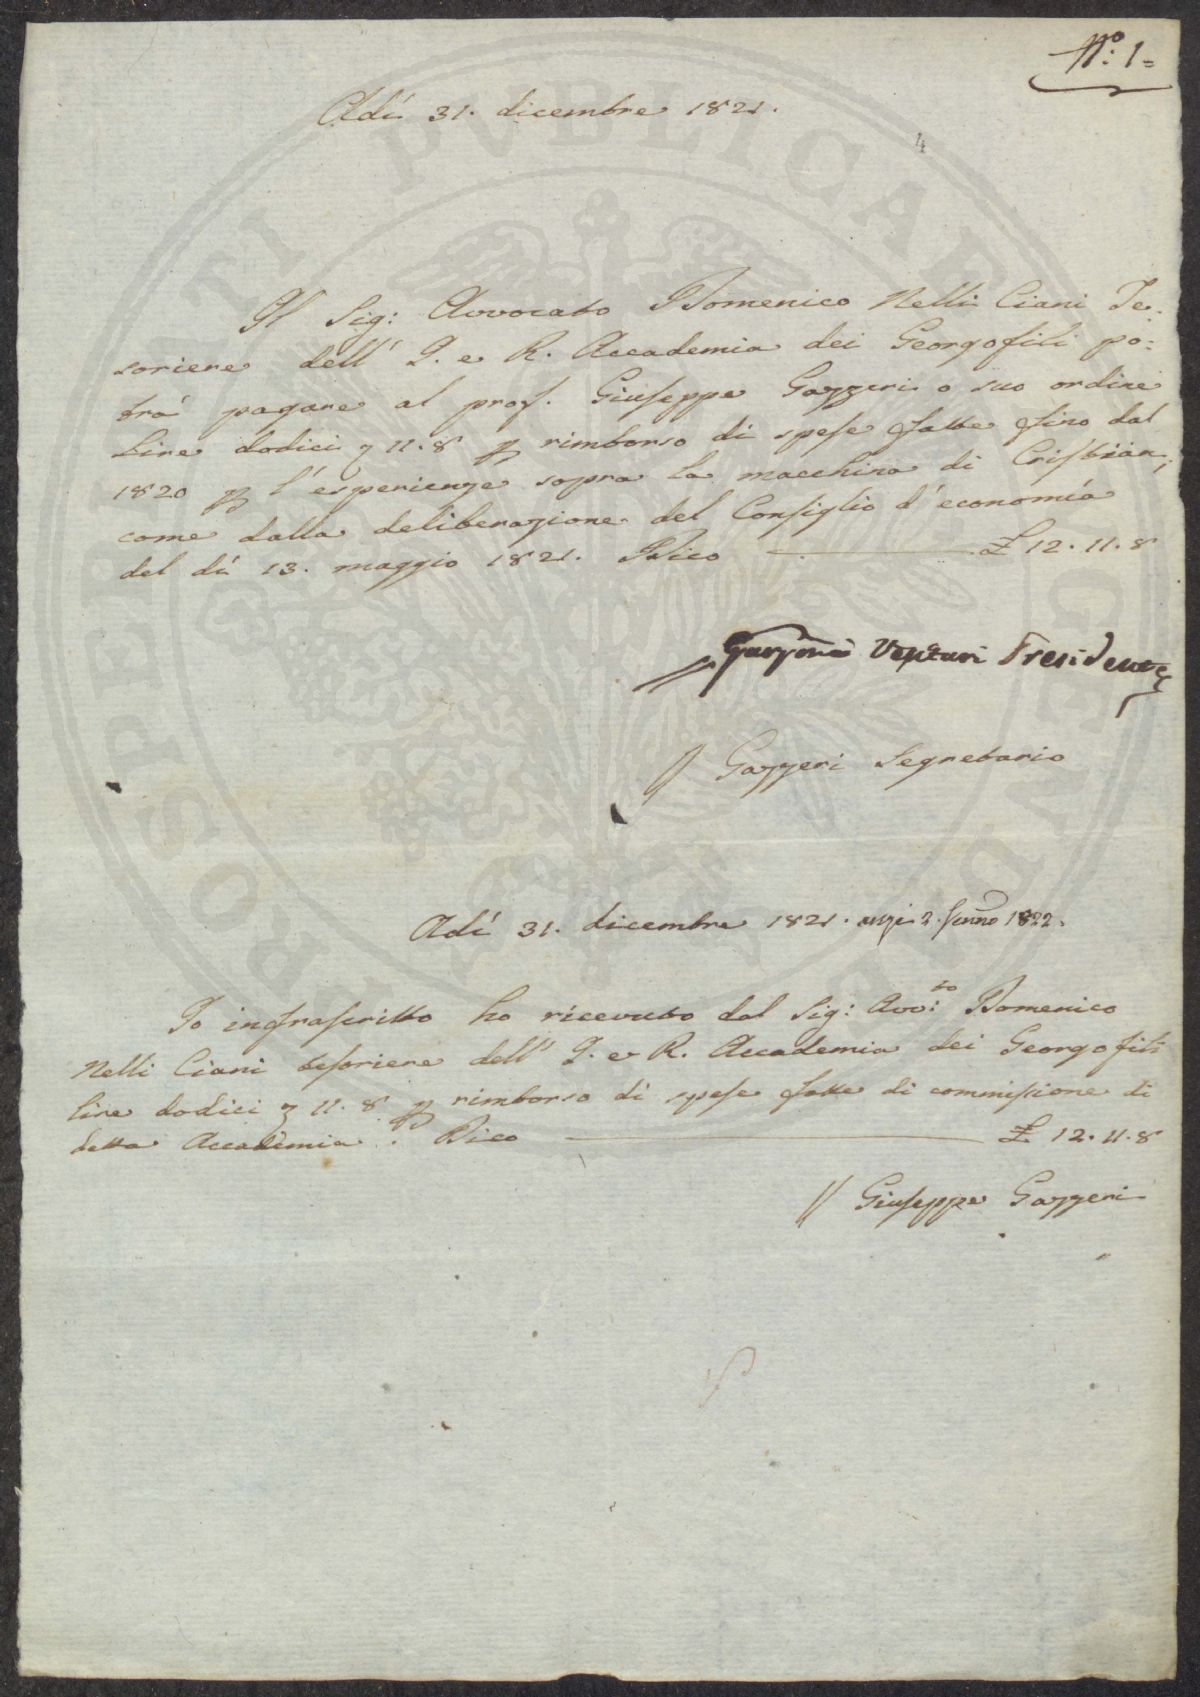 N.º 1=
4
Adí 31. dicembre 1821.
Il Sig: Avvocato Domenico Nelli Ciani Te-
soriere dell' I. e R. Accademia dei Georgofili po-
trá pagare al prof. Giuseppe Gazzeri o suo ordine
Lire dodici 11. 8 rimborso di spese fatte fino dal
1820 l'esperienze sopra la macchina di Cristian,
come dalla deliberazione del Consiglio d'economía
del dí 13. maggio 1821. Dico £ 12. 11. 8
Garzoni Venturi Presidente
Gazzeri Segretario
Adí 31. dicembre 1821. anzi 2. Genno 1822.
Io infrascritto ho ricevuto dal Sig: Avv:to Domenico
Nelli Ciani tesoriere dell' I. e R. Accademia dei Georgofili
Lire dodici 11. 8 rimborso di spese fatte di commissione di
detta Accademia. Dico £ 12. 11. 8
Giuseppe Gazzeri
PROSPERITATI PVBLICAE AVGENDAE